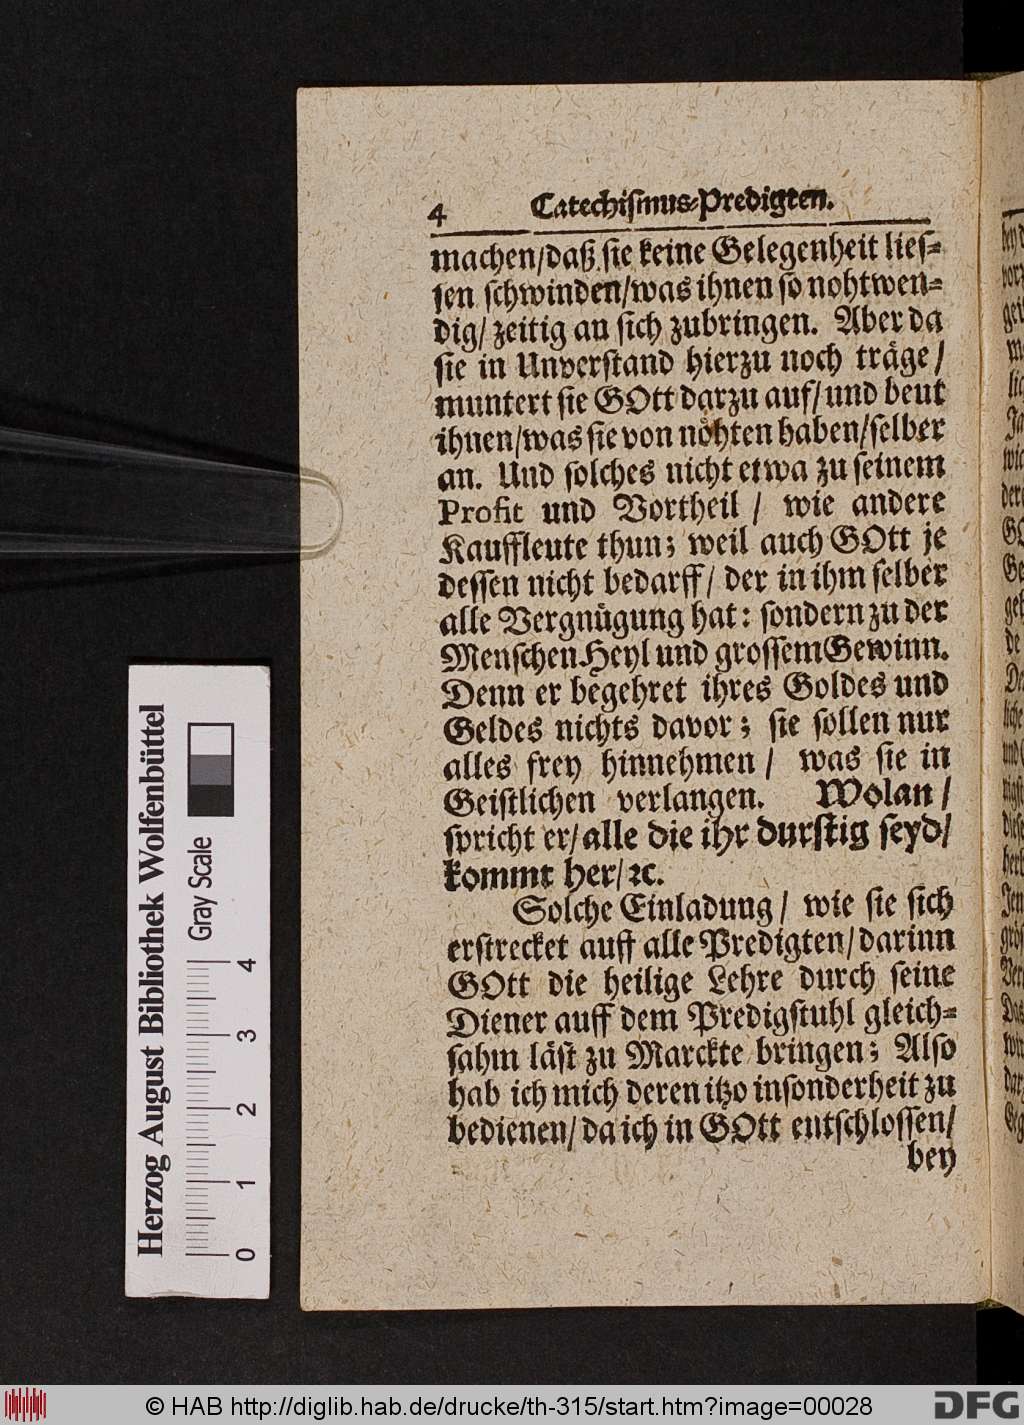 4 Catechiſmus-Predigten.
machen/daß ſie keine Gelegenheit lieſ-
ſen ſchwinden/was ihnen ſo nohtwen-
dig/ zeitig an ſich zubringen. Aber da
ſie in Unverſtand hierzu noch träge/
muntert ſie GOtt darzu auf/ und beut
ihnen/was ſie von nöhten haben/ſelber
an. Und ſolches nicht etwa zu ſeinem
Profit und Vortheil / wie andere
Kauffleute thun; weil auch GOtt je
deſſen nicht bedarff/ der in ihm ſelber
alle Vergnügung hat: ſondern zu der
Menſchen Heyl und groſſem Gewinn.
Denn er begehret ihres Goldes und
Geldes nichts davor; ſie ſollen nur
alles frey hinnehmen / was ſie in
Geiſtlichen verlangen. Wolan /
ſpricht er/ alle die ihr durſtig ſeyd/
kommt her/ ꝛc.
Solche Einladung / wie ſie ſich
erſtrecket auff alle Predigten/ darinn
GOtt die heilige Lehre durch ſeine
Diener auff dem Predigſtuhl gleich-
ſahm läſt zu Marckte bringen; Alſo
hab ich mich deren itzo inſonderheit zu
bedienen/ da ich in GOtt entſchloſſen/
bey
Herzog August Bibliothek Wolfenbüttel
Gray Scale
0 1 2 3 4
© HAB http://diglib.hab.de/drucke/th-315/start.htm?image=00028
DFG